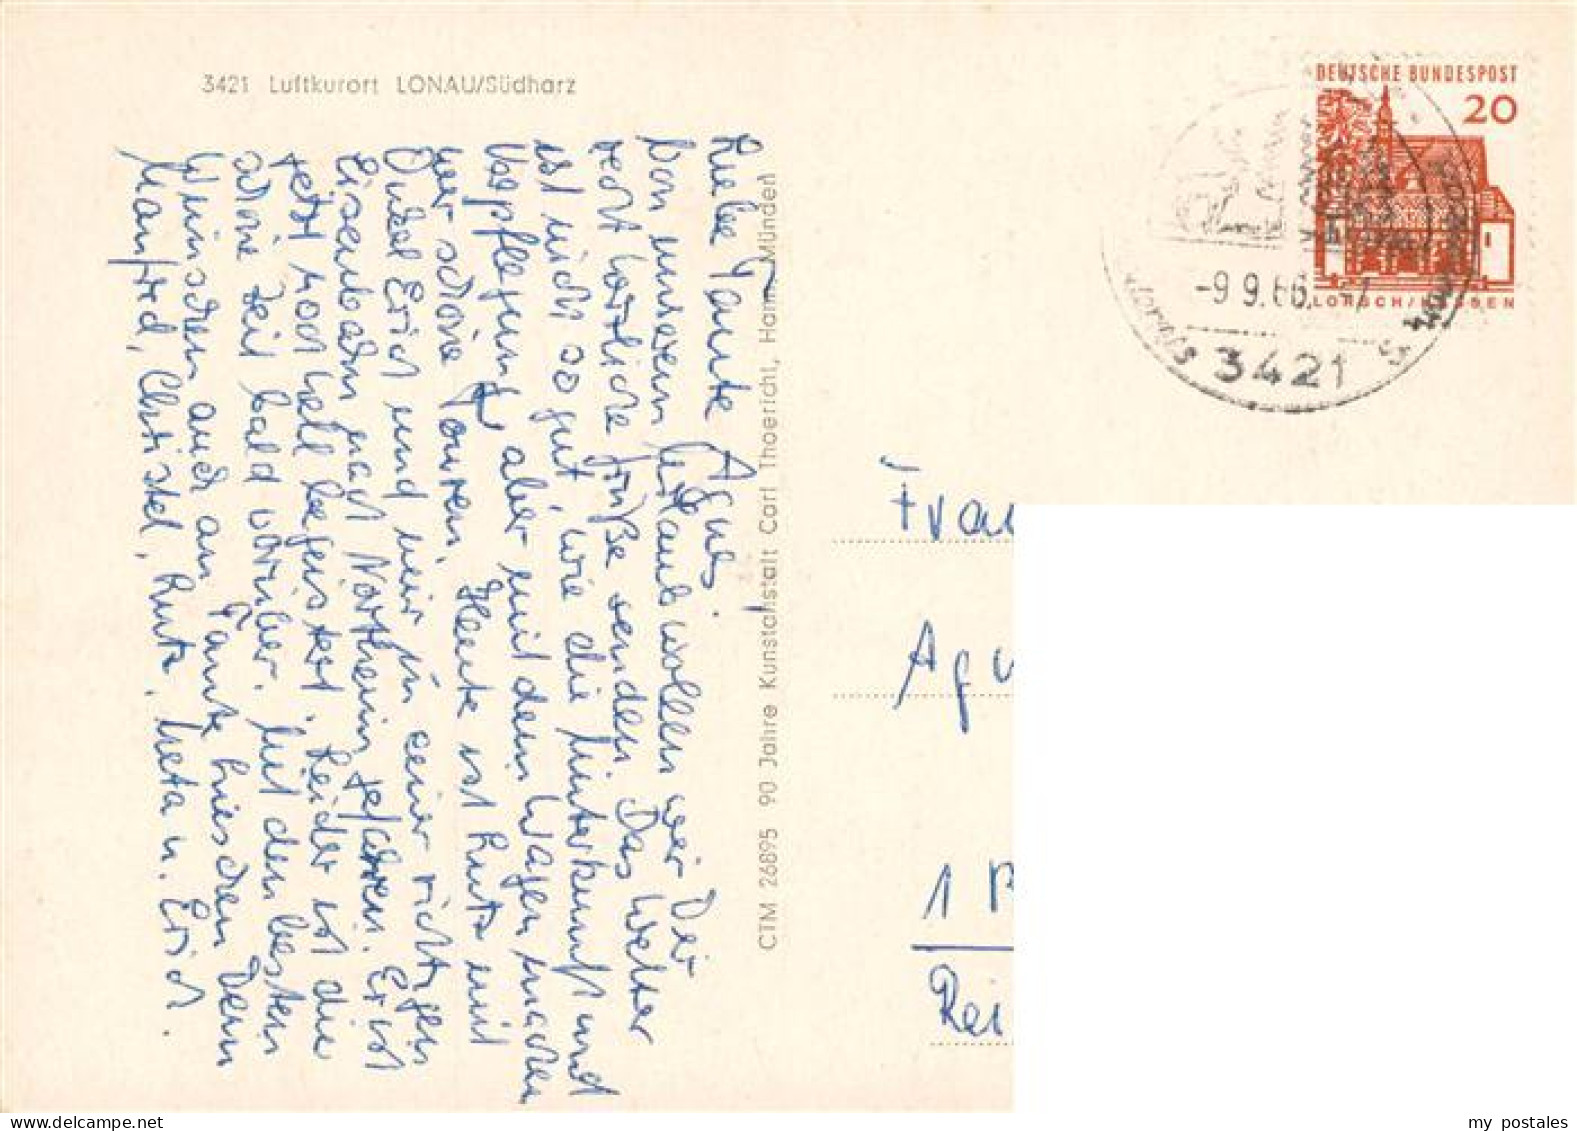 3421 Luftkurort LONAU/Südharz
Liebe Tante Agnes.
Von unserem Urlaub wollen wir Dir
recht herzliche Grüße senden. Das Wetter
ist nicht so gut, wie die Unterkunft und
Verpflegung, aber mit dem Wagen machen
wir schöne Touren. Heute ist Rute mit
Onkel Erich und mir in einer richtigen
Eisenbahn nach Northeim gefahren. Er ist
jetzt noch hell begeistert. Leider ist die
schöne Zeit bald vorüber. Mit den besten
Wünschen auch an Tante Lieschen Dein
Manfred, Christel, Rute, Meta u. Erich.
CTM 26895 90 Jahre Kunstanstalt Carl Thoericht, Hann. Münden
DEUTSCHE BUNDESPOST
20
LORSCH/HESSEN
-9.9.66.-
3421
Frau
Agn
1
Rei
delcampe.net
my_postales